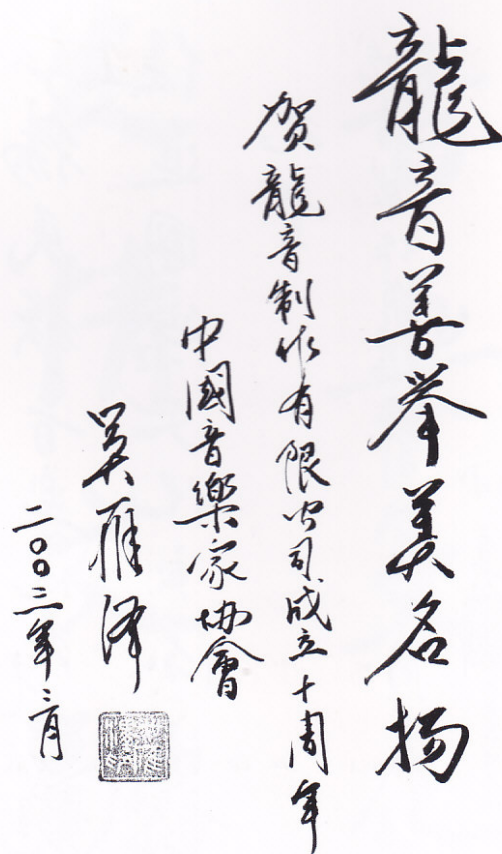 龍音善举美名扬
贺龍音制作有限公司成立十周年
中國音樂家协會
吴雁泽
二〇〇三年二月